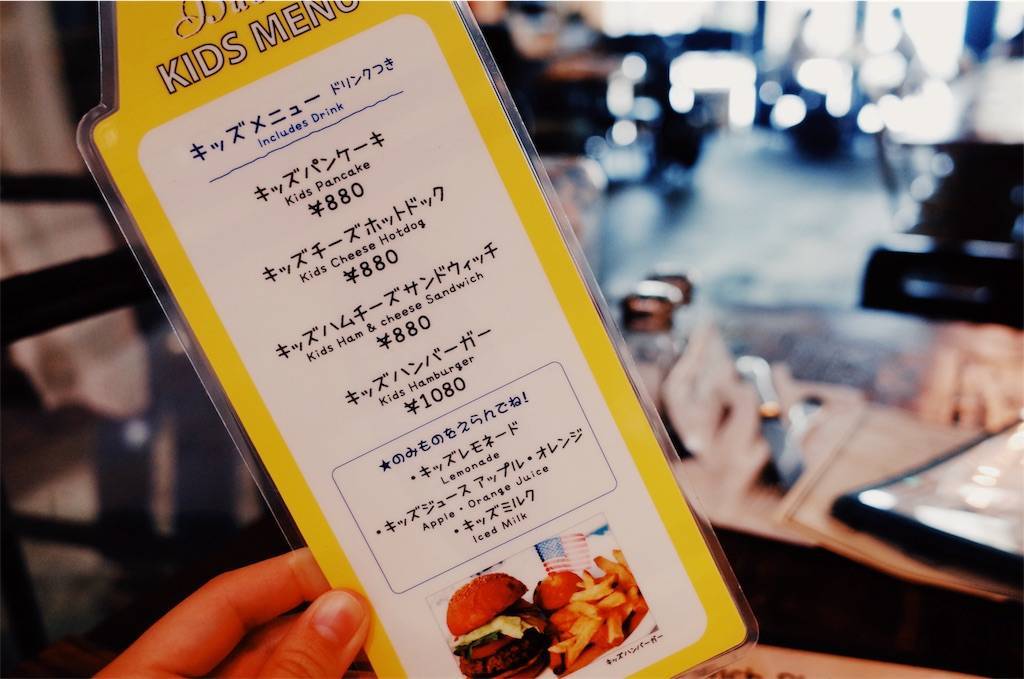 KIDS MENU
キッズメニュー ドリンクつき
Includes Drink
キッズパンケーキ
Kids Pancake
¥880
キッズチーズホットドック
Kids Cheese Hotdog
¥880
キッズハムチーズサンドウィッチ
Kids Ham & cheese Sandwich
¥880
キッズハンバーガー
Kids Hamburger
¥1080
★のみものをえらんでね!
・キッズレモネード
Lemonade
・キッズジュース アップル・オレンジ
Apple・Orange Juice
・キッズミルク
Iced Milk
キッズハンバーガー